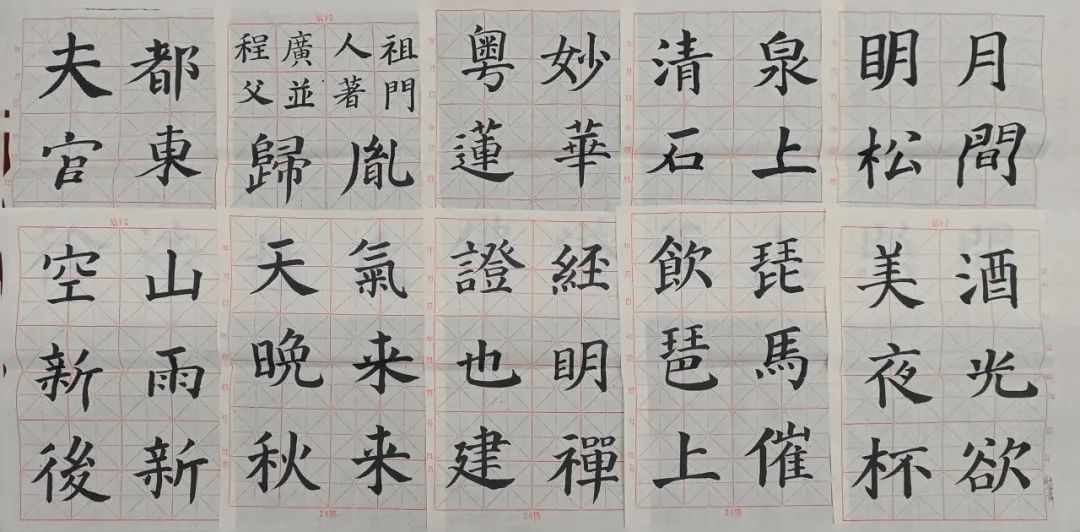 夫都
官東
程廣人祖
父並著門
歸胤
粤妙
蓮華
清泉
石上
明月
松間
空山
新雨
後新
天氣
晚来
秋来
證經
也明
建禪
飲琵
琶馬
上催
美酒
夜光
杯欲
24格
24格
24格